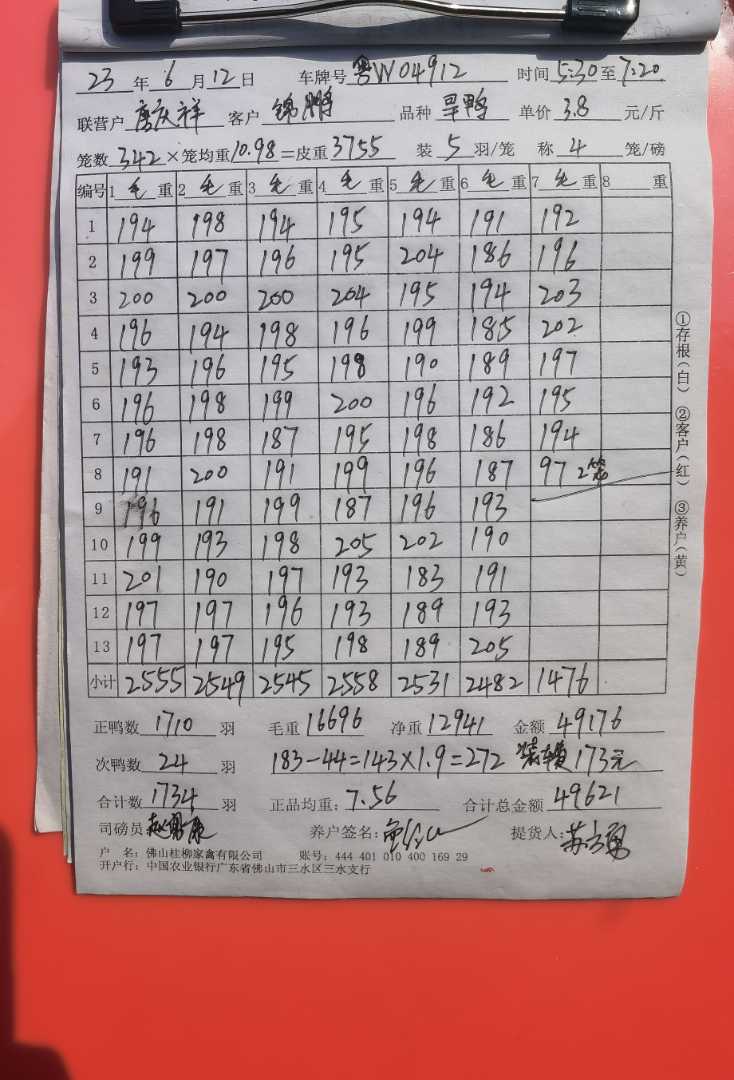 23年6月12日 车牌号 粤W04912 时间 5:30至7:20
联营户 唐庆祥 客户 锦鹏 品种 旱鸭 单价 3.8 元/斤
笼数 342×笼均重10.98=皮重3755 装 5 羽/笼 称 4 笼/磅
编号 1 毛 重 2 毛 重 3 毛 重 4 毛 重 5 毛 重 6 毛 重 7 毛 重 8 重
1 194 198 194 195 194 191 192
2 199 197 196 195 204 186 196
3 200 200 200 204 195 194 203
4 196 194 198 196 199 185 202
5 193 196 195 198 190 189 197
6 196 198 199 200 196 192 195
7 196 198 187 195 198 186 194
8 191 200 191 199 196 187 97 2笼
9 196 191 199 187 196 193
10 199 193 198 205 202 190
11 201 190 197 193 183 191
12 197 197 196 193 189 193
13 197 197 195 198 189 205
小计 2555 2549 2545 2558 2531 2482 1476
①存根(白) ②客户(红) ③养户(黄)
正鸭数 1710 羽 毛重 16696 净重 12941 金额 49176
次鸭数 24 羽 183-44=143×1.9=272 装车费173元
合计数 1734 羽 正品均重: 7.56 合计总金额 49621
司磅员: 养户签名: 提货人:
户 名: 佛山桂柳家禽有限公司 账号: 444 401 010 400 169 29
开户行: 中国农业银行广东省佛山市三水区三水支行